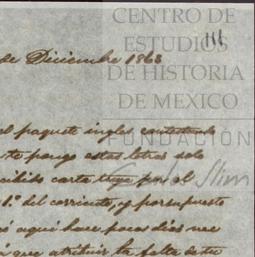 CENTRO DE
ESTUDIOS
DE HISTORIA
DE MEXICO
FUNDACIÓN
Carlos Slim
111
de Diciembre 1863
el paquete ingles contestando
te pongo estas letras solo
recibido carta tuya por el
1º. del corriente, y por supuesto
aqui hace pocos dias me
que atribuir la falta de tu